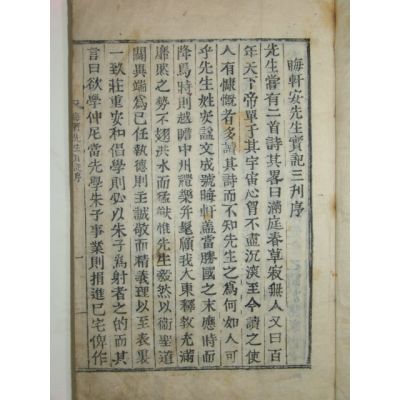 晦軒安先生實記三刋序
先生嘗有二首詩其畧曰滿庭春草寂無人又曰百
年天下帝單于其宇宙心胷不盡沉淚至今讀之使
人有慷慨者多讀其詩而不知先生之爲何如人可
乎先生姓安諡文成號晦軒盖當勝國之末應時而
降馬特則越瞻中州體樂并毫願我大東釋教充滿
靡然之勢不翅洪水而猛獸惟先生毅然以衛聖道
闢異端爲己任執德則主誠敬而精義理以至表裏
一致莊重安和倡學則必以朱子爲射者之的而其
言曰欲學仲尼當先學朱子事業則捐進己宅俾作